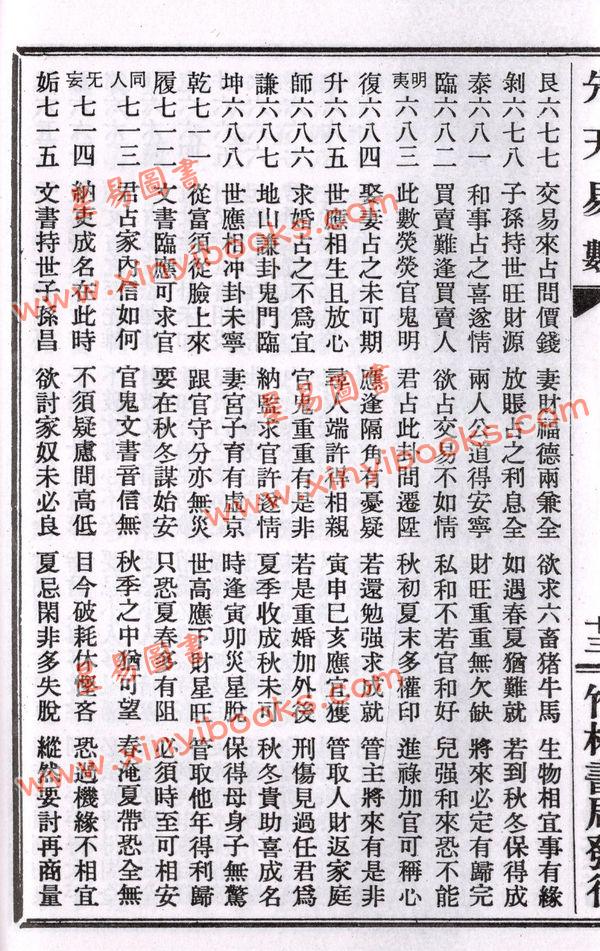 先天易數
十三
竹林書局發行
艮六七七 交易來占問價錢 妻財福德兩兼全 欲求六畜猪牛馬 生物相宜事有緣
剝六七八 子孫持世旺財源 放賬占之利息全 如遇春夏猶難就 若到秋冬保得成
泰六八一 和事占之喜遂情 兩人公道得安寧 財旺重重無欠缺 將來必定有歸完
臨六八二 買賣難逢買賣人 欲占交易不如情 私和不若官和好 兒强和來恐不能
明夷六八三 此數熒熒官鬼明 君占此卦問遷陞 秋初夏末多權印 進祿加官可稱心
復六八四 娶妻占之未可期 應逢隔角有憂疑 若還勉强求成就 管主將來有是非
升六八五 世應相生且放心 尋人端許得相親 寅申巳亥應官獲 管取人財返家庭
師六八六 求婚占之不爲宜 官鬼重重有是非 若是重婚加外 刑傷見過任君爲
謙六八七 地山謙卦鬼門臨 納監求官許遂情 夏季收成秋未可 秋冬貴助喜成名
坤六八八 世應相冲卦未寧 妻宮子育有虛京 時逢寅卯災星脫 保得母身子無驚
乾七一一 從富須從臉上來 跟官守分亦無災 世高應下財星旺 管取他年得利歸
履七一二 文書臨應可求官 要在秋冬謀始安 只恐夏春多有阻 必須時至可相安
同人七一三 君占家內信如何 官鬼文書音信無 秋季之中猶可望 春淹夏帶恐全無
无妄七一四 納吏成名在此時 不須疑慮問高低 目今破耗休慳吝 恐過機緣不相宜
姤七一五 文書持世子孫昌 欲討家奴未必良 夏忌閑非多失脫 縱然要討再商量
星易圖書
www.xinyibooks.com
星易圖書
www.xinyibooks.com
星易圖書
www.xinyibooks.com